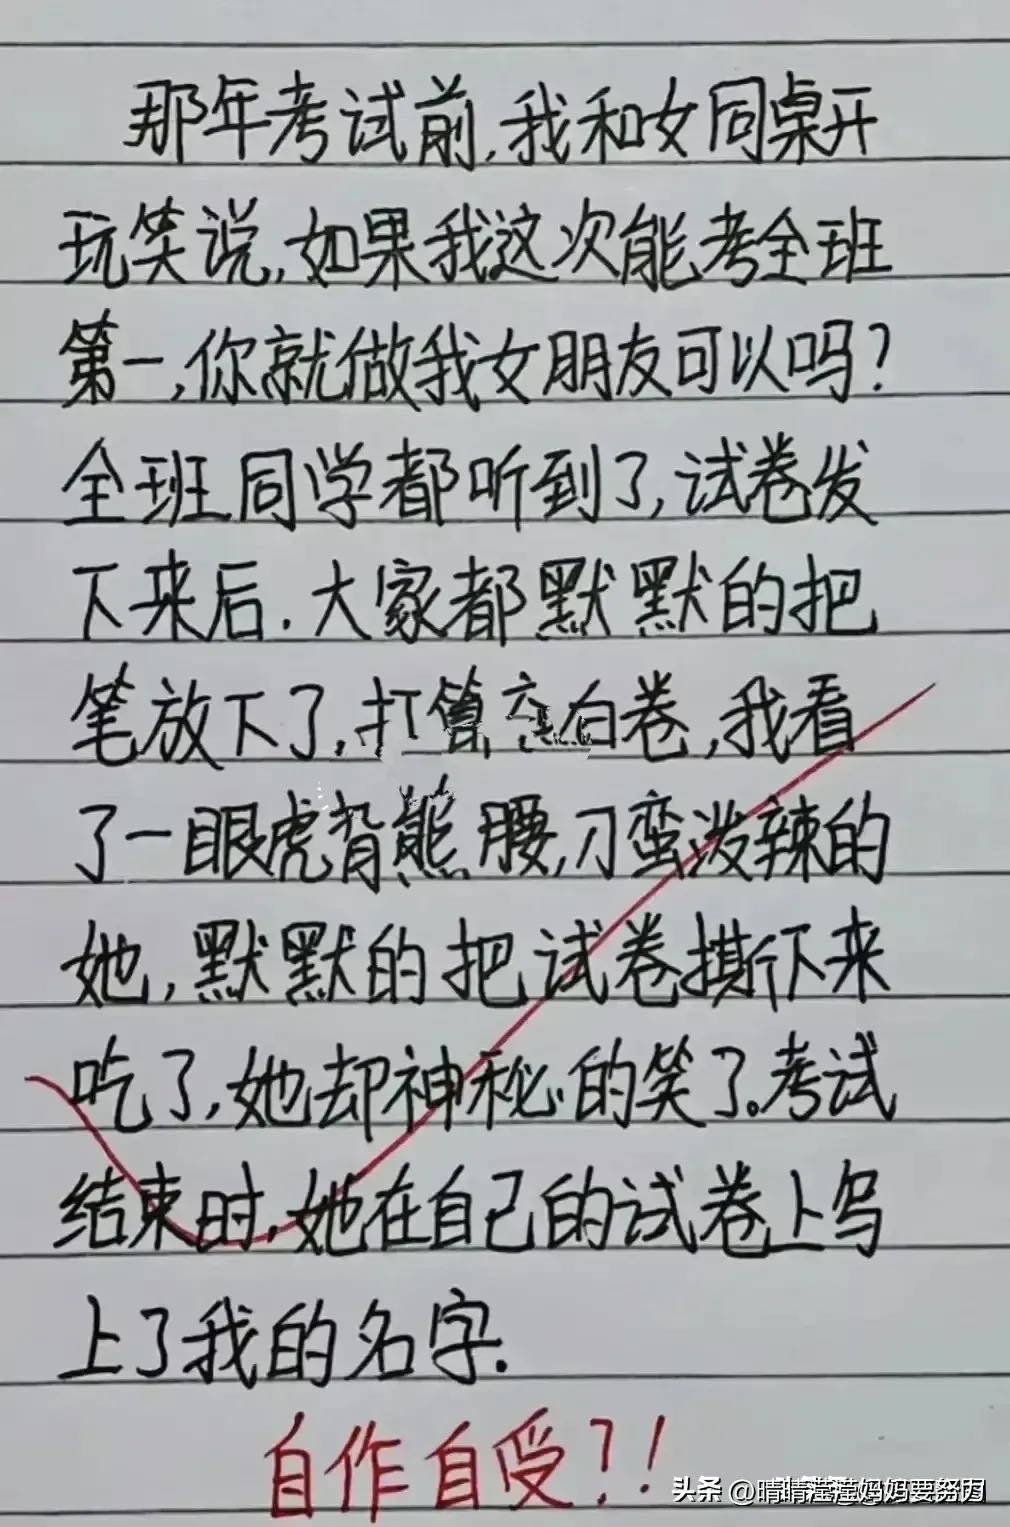 那年考试前,我和女同桌开
玩笑说,如果我这次能考全班
第一,你就做我女朋友可以吗?
全班同学都听到了,试卷发
下来后.大家都默默的把
笔放下了,打算交白卷,我看
了一眼虎背熊腰,刁蛮泼辣的
她,默默的把试卷撕下来
吃了,她却神秘的笑了.考试
结束时,她在自己的试卷上写
上了我的名字.
自作自受?!
头条 @晴晴莲莲妈妈要努力